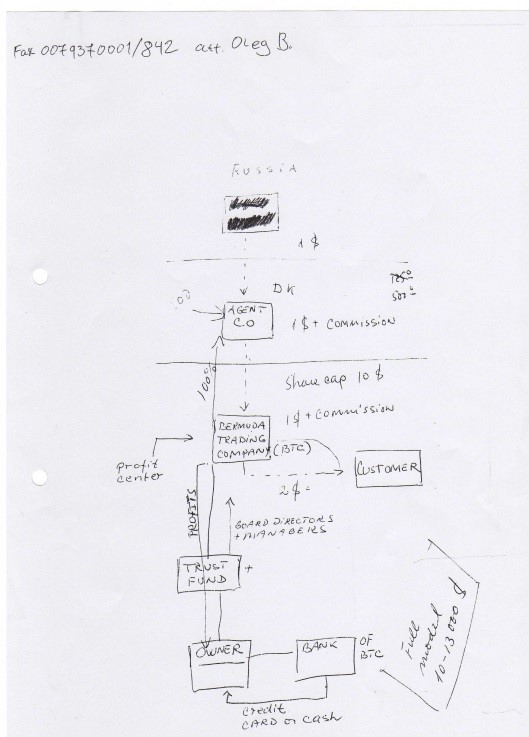 Fax 0079370001/842 att. Oleg B.
RUSSIA
1 $
DK
AGENT
C.O
1 $ + COMMISSION
100%
Share cap 10 $
1 $ + COMMISSION
BERMUDA
TRADING
COMPANY (BTC)
profit
center
CUSTOMER
2 $ =
PROFITS
BOARD DIRECTORS
+ MANAGERS
TRUST
FUND
+
Full
model
10-13000 $
OWNER
BANK
OF
BTC
credit
CARD or cash